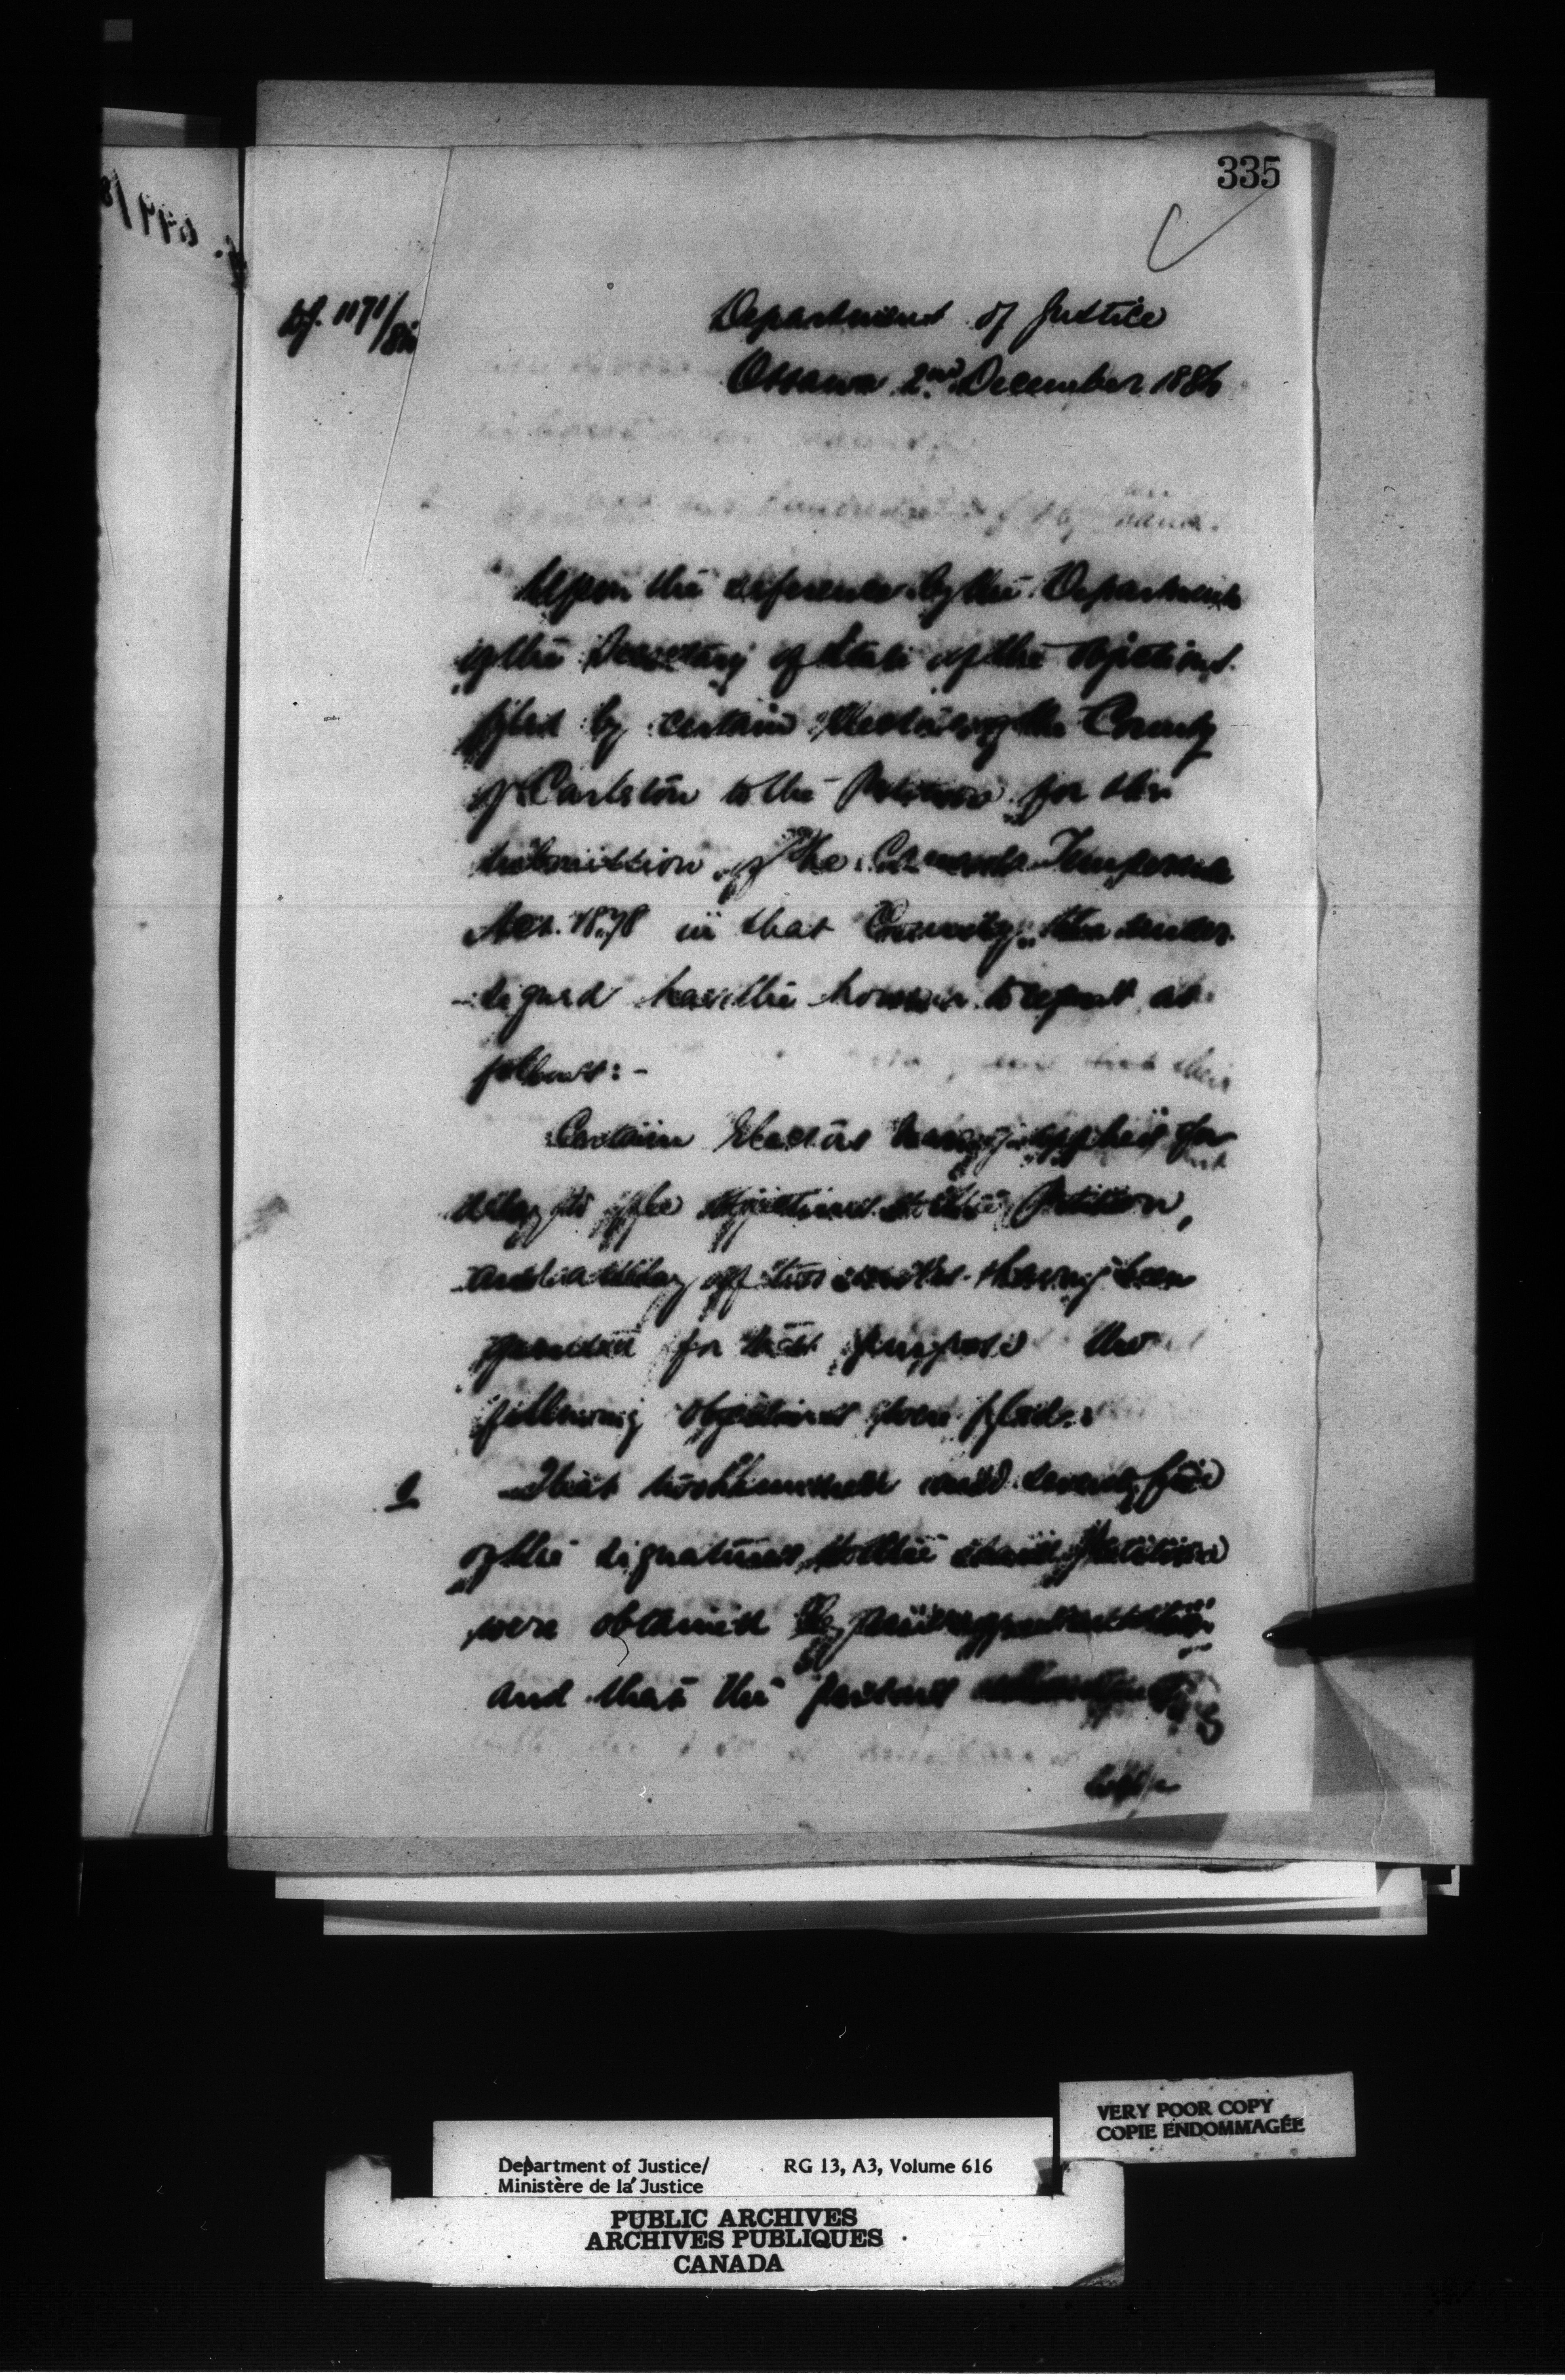 335
1171/86
Department of Justice
Ottawa 2nd December 1886
Upon the reference by the Department
of the Secretary of State of the objections
filed by certain Electors of the County
of Carleton to the Petition for the
submission of the Canada Temperance
Act. 1878 in that County, the under
-signed has the honour to report as
follows:-
Certain Electors having applied for
delay to file objections to the Petition,
and a delay of two weeks having been
granted for that purpose the
following objections were filed:
1 That two hundred and seventy five
of the signatures to the said Petition
were obtained by
and that the persons
VERY POOR COPY
COPIE ENDOMMAGÉE
Department of Justice/ RG 13, A3, Volume 616
Ministère de la Justice
PUBLIC ARCHIVES
ARCHIVES PUBLIQUES
CANADA